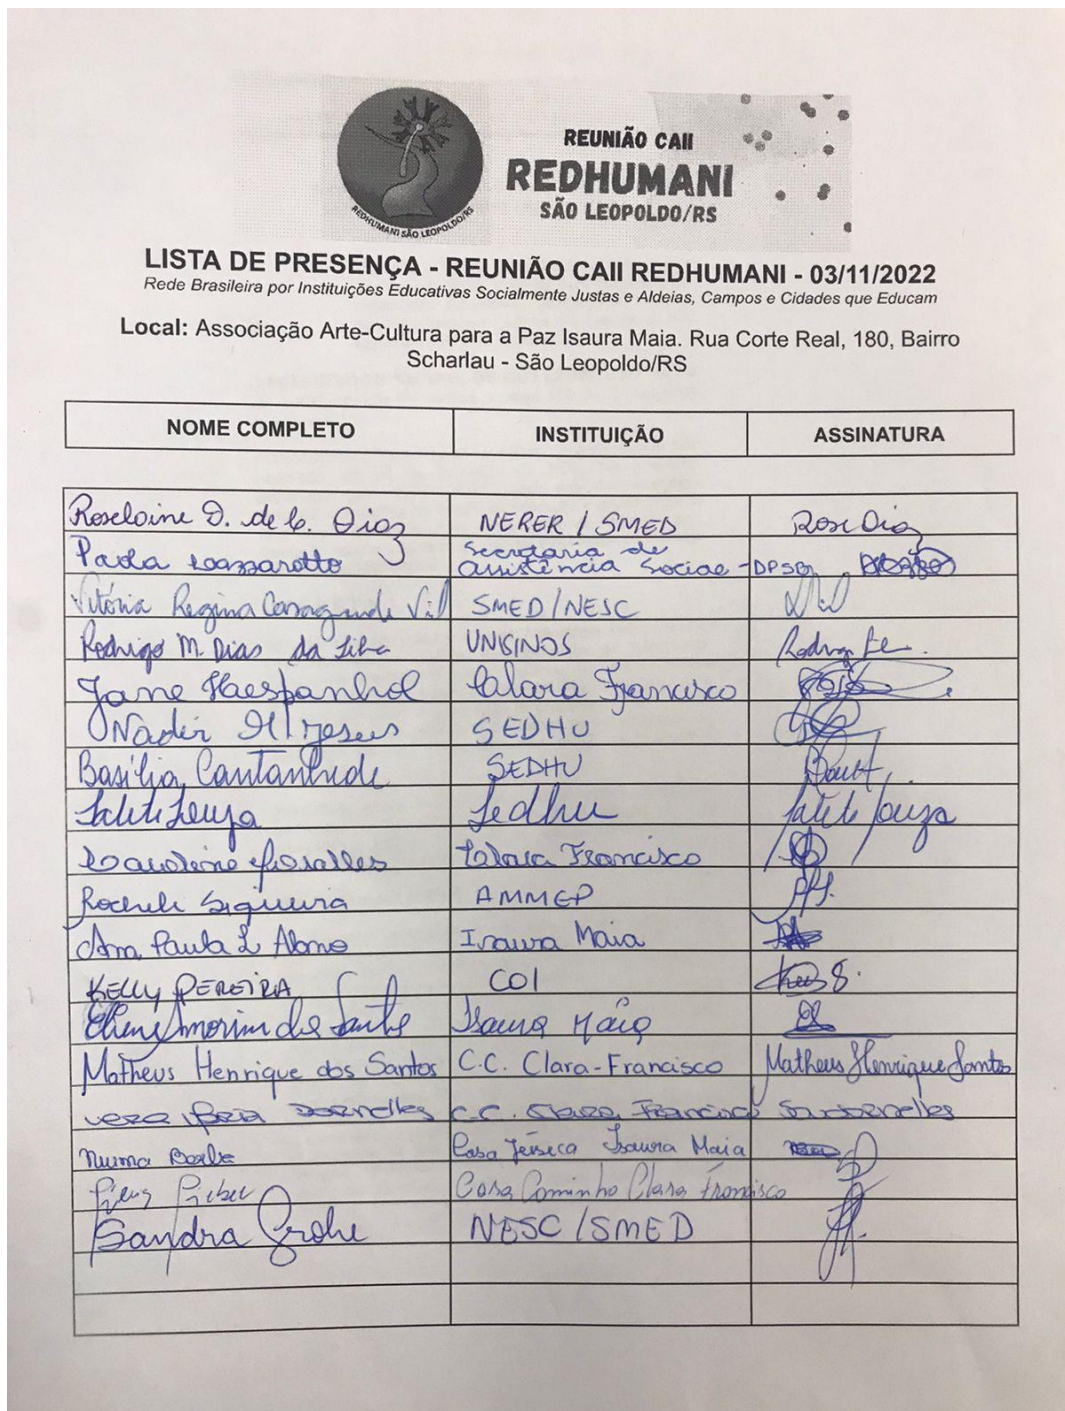 REDHUMANI SÃO LEOPOLDO/RS
REUNIÃO CAII
REDHUMANI
SÃO LEOPOLDO/RS
LISTA DE PRESENÇA - REUNIÃO CAII REDHUMANI - 03/11/2022
Rede Brasileira por Instituições Educativas Socialmente Justas e Aldeias, Campos e Cidades que Educam
Local: Associação Arte-Cultura para a Paz Isaura Maia. Rua Corte Real, 180, Bairro
Scharlau - São Leopoldo/RS
NOME COMPLETO INSTITUIÇÃO ASSINATURA
Roseloine D. de C. Diaz NERER / SMED Rose Diaz
Paola Lazzarotto Secretaria de
assistência Social - DPSB
Vitória Regina Casagrande Vil SMED/NESC
Rodrigo M. Dias da Silva UNISINOS
Jane Haespanhol Clara Francisco
Nadir M Jesus SEDHU
Basilia Cantanhede SEDHU
Salete Souza Sedhu Salete Souza
Caroline Clara Francisco
Rocheli Siqueira AMMEP
Ana Paula L Alano Isaura Maia
KELLY PEREIRA COI
Eliene Amorim dos Santos Isaura Maia
Matheus Henrique dos Santos C.C. Clara-Francisco Matheus Henrique Santos
Vera Dornelles C.C. Clara Francisco
Numa Casa Isaura Maia
Casa Caminho Clara Francisco
Sandra Grohe NESC/SMED